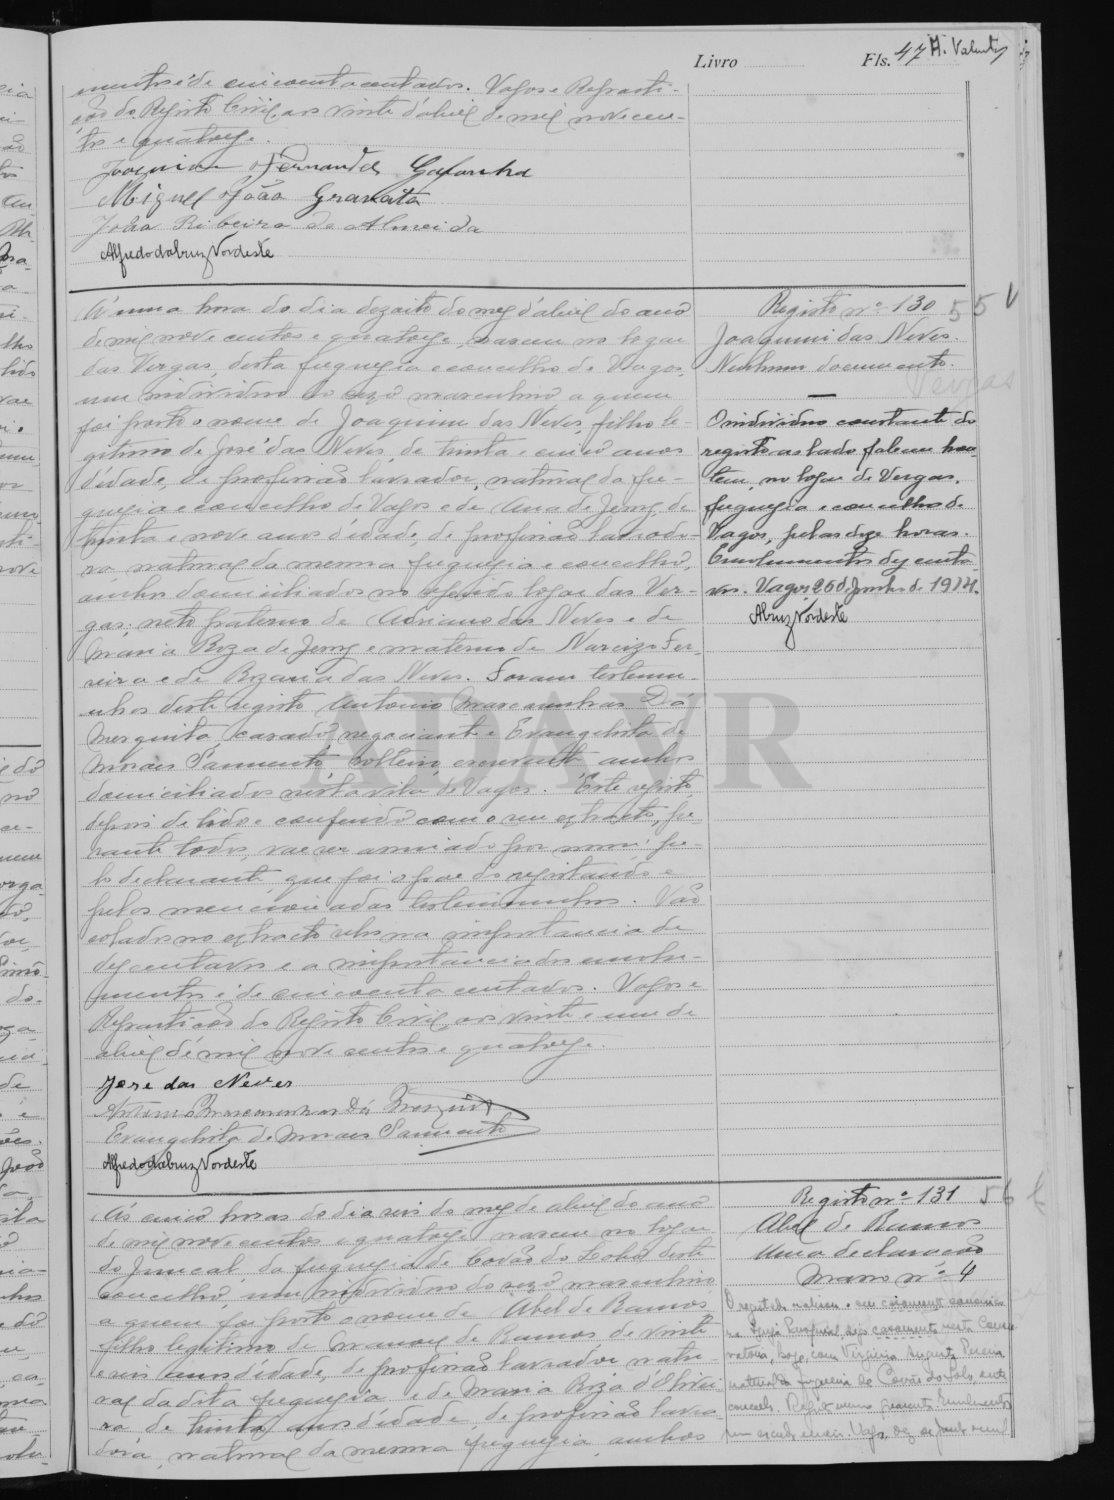 Livro Fls. 47
mentos é de cincoenta centavos. Vagos e Reparti-
ção do Registo Civil, aos vinte d'abril de mil nove cen-
tos e quatorze.
Joaquim Fernandes Gafanha
Miguel João Gravato
João Ribeiro de Almeida
Alfredo da Cruz Nordeste
Á uma hora do dia dezoito do mez d'abril do ano
de mil nove centos e quatorze, nasceu no logar
das Vergas, desta freguezia e concelho de Vagos,
um individuo do sexo masculino a quem
foi posto o nome de Joaquim das Neves, filho le-
gitimo de José das Neves, de trinta e cinco anos
d'idade, de profissão lavrador, natural da fre-
guezia e concelho de Vagos e de Ana de Jesus, de
trinta e nove anos d'idade, de profissão lavrado-
ra, natural da mesma freguezia e concelho,
ambos domiciliados no referido logar das Ver-
gas; neto paterno de Adriano das Neves e de
Maria Roza de Jesus e materno de Narcizo Fer-
reira e de Rozaria das Neves. Foram testemu-
nhas deste registo Antonio Mascarenhas Dá
Mesquita, casado, negociante e Evangelista de
Morais Sarmento, solteiro, escrevente, ambos
domiciliados nesta vila de Vagos. Este registo
depois de lido e conferido com o seu extracto, pe-
rante todos, vae ser assinado por mim, pe-
lo declarante que foi o pae do registando e
pelas mencionadas testemunhas. Vão
colados no extracto selos na importancia de
dez centavos e a importancia dos emolu-
mentos é de cincoenta centavos. Vagos e
Repartição do Registo Civil, aos vinte e um de
abril de mil nove centos e quatorze.
Jose das Neves
Antonio Mascarenhas Dá Mesquita
Evangelista de Morais Sarmento
Alfredo da Cruz Nordeste
Registo nº 130 55
Joaquim das Neves.
Nenhum documento.
Vergas
O individuo constante do
registo ao lado faleceu hon-
tem, no logar de Vergas,
freguezia e concelho de
Vagos, pelas doze horas.
Emolumentos dez centa-
vos. Vagos, 26 de Junho de 1914.
A Cruz Nordeste
ADAVR
Ás cinco horas do dia seis do mez de abril do ano
de mil nove centos e quatorze nasceu no logar
do Juncal, da freguezia de Covão do Lobo deste
concelho, um individuo do sexo masculino
a quem foi posto o nome de Abel de Ramos
filho legitimo de Manoel de Ramos de vinte
e seis anos d'idade, de profissão lavrador natu-
ral da dita freguezia e de Maria Roza d'Olivei-
ra de trinta anos d'idade, de profissão lavra-
dora, natural da mesma freguezia, ambos
Registo nº 131 56
Abel de Ramos
Uma declaração
Maço nº 4